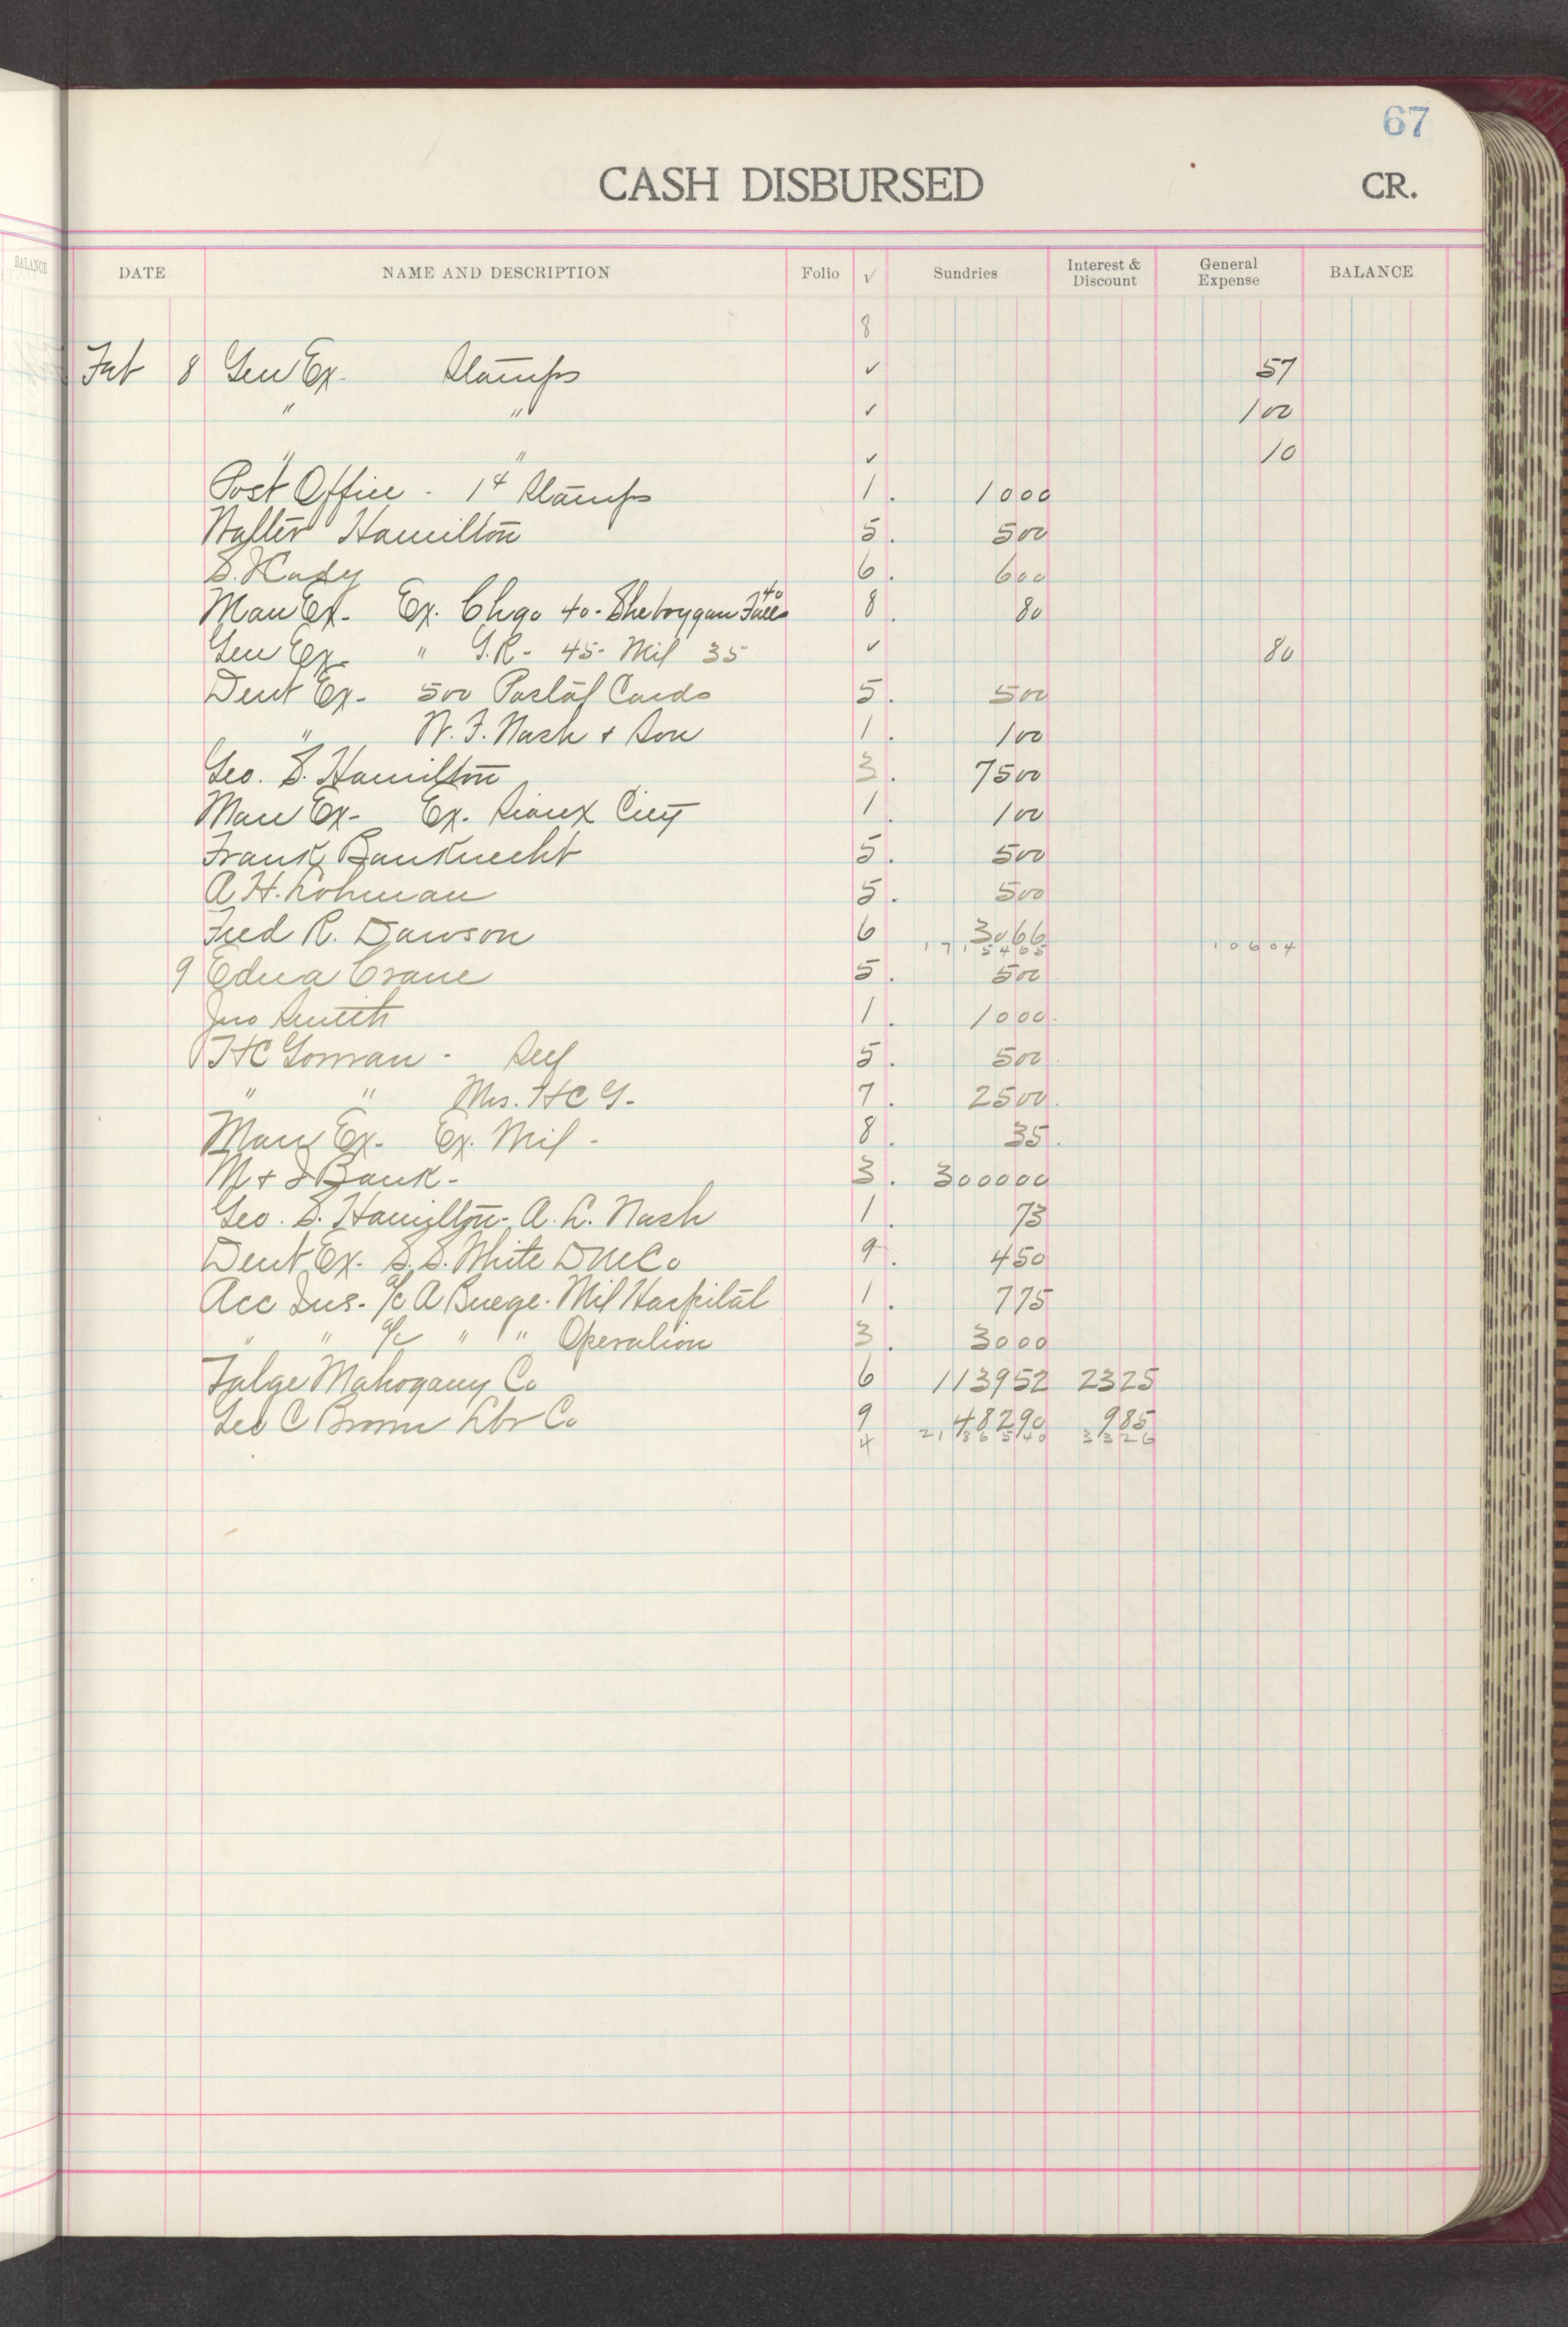 67
CASH DISBURSED CR.
BALANCE
DATE NAME AND DESCRIPTION Folio ✓ Sundries Interest & Discount General Expense BALANCE
8
Feb 8 Gen Ex. Stamps ✓ 57
" " ✓ 100
" " ✓ 10
Post Office - 1¢ Stamps 1. 1000
Walter Hamilton 5. 500
S. Hady 6. 600
Man Ex- Ex. Chgo 40- Sheboygan Falls 40 8. 80
Gen Ex- " G.R- 45- Mil 35 ✓ 80
Dent Ex- 500 Postal Cards 5. 500
" W. F. Nash & Son 1. 100
Geo. S. Hamilton 3. 7500
Man Ex- Ex. Sioux City 1. 100
Frank Bauknecht 5. 500
A H. Lohman 5. 500
Fred R. Dawson 6 3066
1715465 10604
9 Edna Crane 5. 500
Jno Smith 1. 1000
H C Gowran - Self 5. 500
" " Mrs. H C G- 7. 2500
Man Ex. Ex. Mil - 8. 35
M & I Bank - 3. 300000
Geo. S. Hamilton- A. L. Nash 1. 73
Dent Ex. S. S. White D M Co 9. 450
Acc Ins. a/c A Buege. Mil Hospital 1. 775
" " a/c " " Operation 3. 3000
Talge Mahogany Co 6 113952 2325
Geo C Brown Lbr Co 9 48290 985
4 2186540 3326